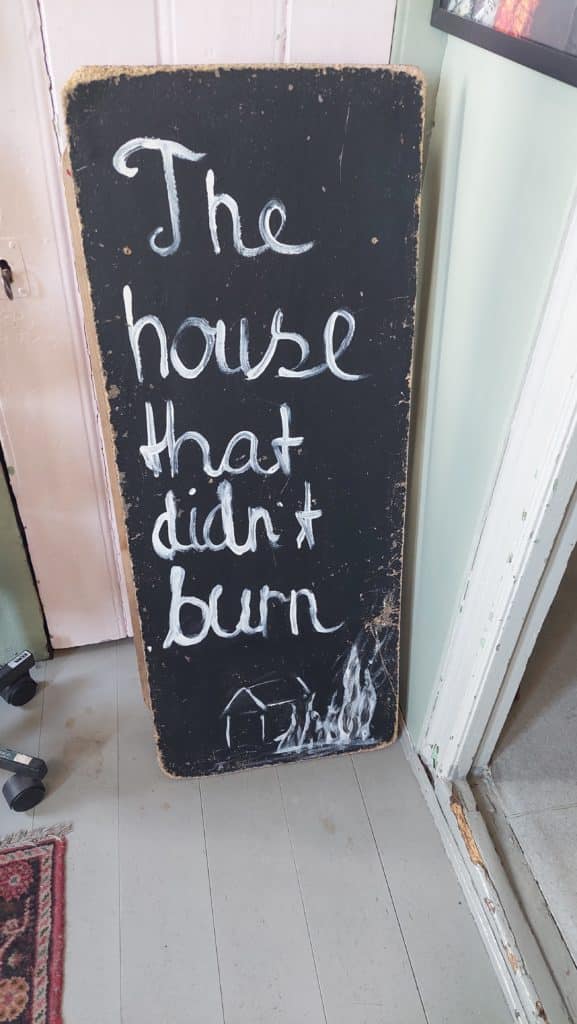 The
house
that
didn't
burn